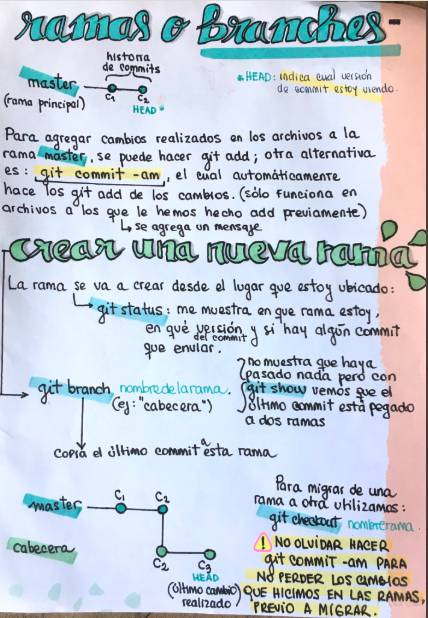 ramas o branches-
historia
de commits
master
(rama principal)
C1 C2
HEAD *
* HEAD: indica cual versión
de commit estoy viendo.
Para agregar cambios realizados en los archivos a la
rama master, se puede hacer git add; otra alternativa
es: git commit -am, el cual automáticamente
hace los git add de los cambios. (sólo funciona en
archivos a los que le hemos hecho add previamente)
se agrega un mensaje
crear una nueva rama
La rama se va a crear desde el lugar que estoy ubicado:
git status: me muestra en que rama estoy,
en qué versión y si hay algún commit
del commit
que enviar.
git branch nombredelarama.
(ej: "cabecera")
no muestra que haya
pasado nada pero con
git show vemos que el
último commit está pegado
a dos ramas
copia el último commit a esta rama
master
C1 C2
cabecera
C2 C3
HEAD
(último cambio
realizado)
Para migrar de una
rama a otra utilizamos:
git checkout nombrerama.
! NO OLVIDAR HACER
git commit -am PARA
NO PERDER LOS CAMBIOS
QUE HICIMOS EN LAS RAMAS,
PREVIO A MIGRAR.